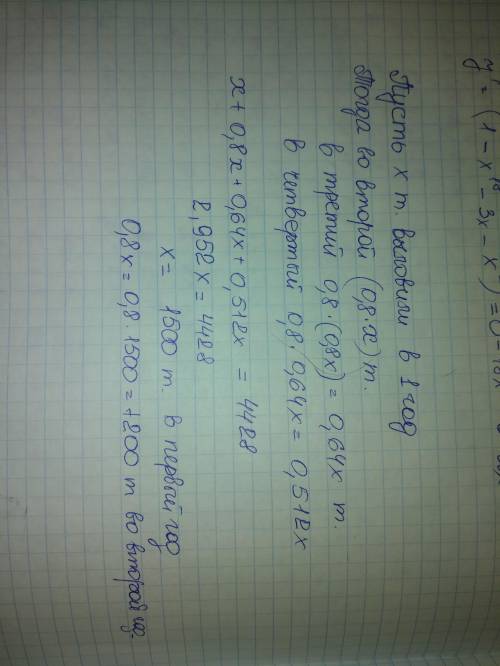 y' = (1 - x¹⁶ - 3x - x
Пусть x т. выловили в 1 год
Тогда во второй (0,8·x) т.
в третий 0,8·(0,8x) = 0,64x т.
в четвертый 0,8·0,64x = 0,512x
x + 0,8x + 0,64x + 0,512x = 4428
2,952x = 4428
x = 1500 т. в первый год
0,8x = 0,8·1500 = 1200 т во второй год.